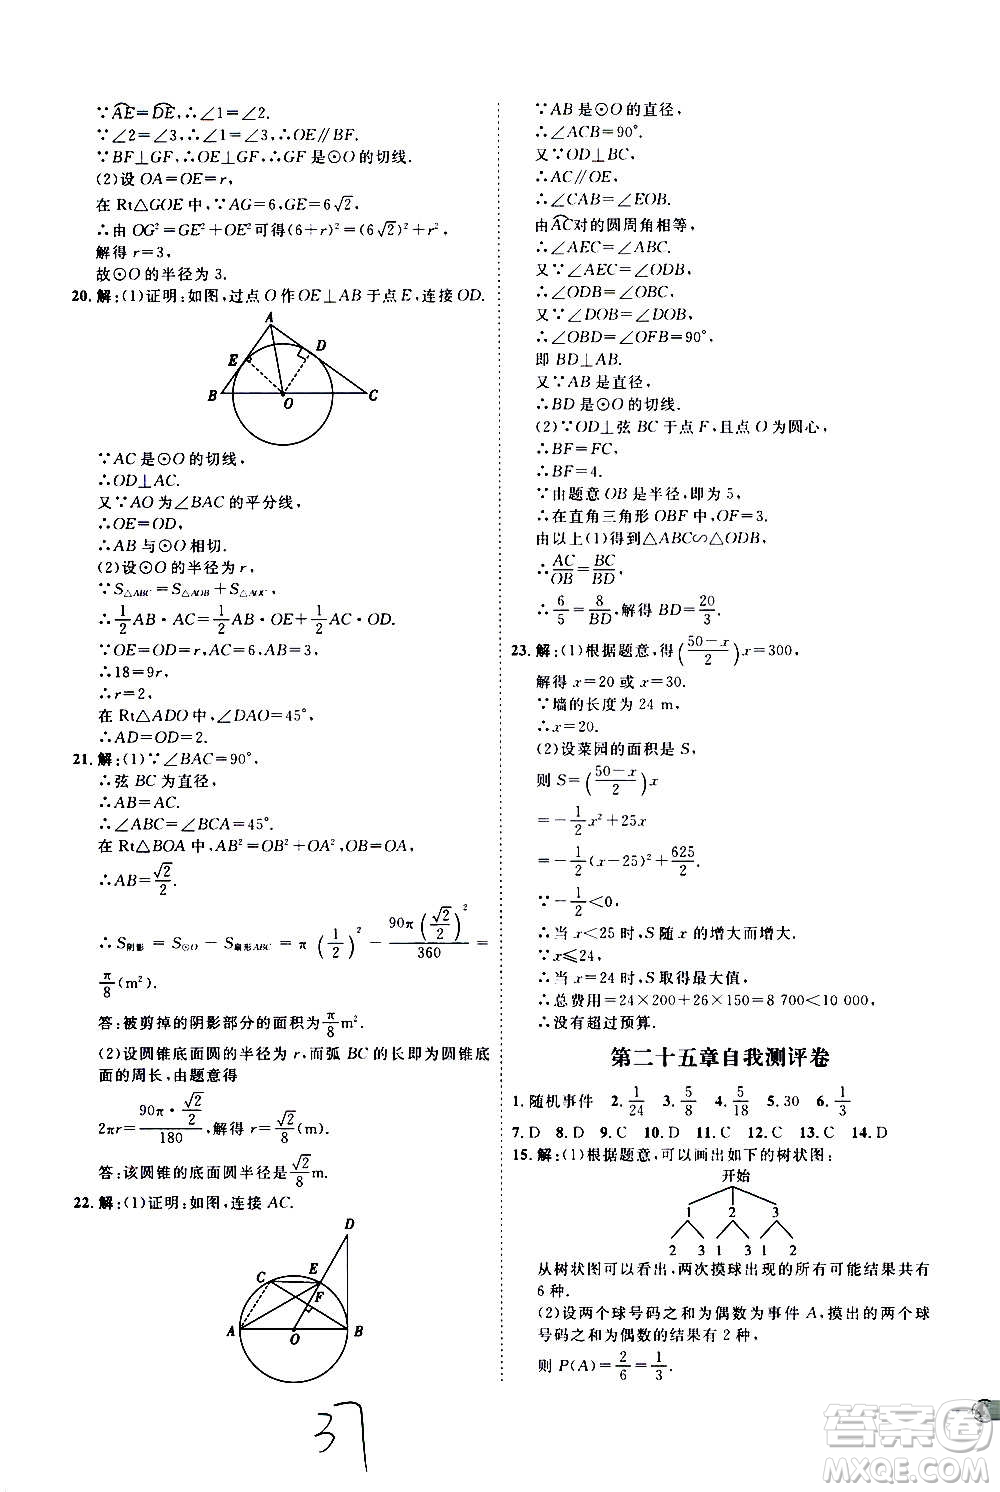 ∵⌒AE=⌒DE,∴∠1=∠2.
∵∠2=∠3,∴∠1=∠3,∴OE∥BF.
∵BF⊥GF,∴OE⊥GF,∴GF是⊙O的切线.
(2)设OA=OE=r,
在Rt△GOE中,∵AG=6,GE=6√2,
∴由OG²=GE²+OE²可得(6+r)²=(6√2)²+r²,
解得r=3,
故⊙O的半径为3.
20.解:(1)证明:如图,过点O作OE⊥AB于点E,连接OD.
A
E
D
B
O
C
∵AC是⊙O的切线,
∴OD⊥AC.
又∵AO为∠BAC的平分线,
∴OE=OD,
∴AB与⊙O相切.
(2)设⊙O的半径为r,
∵S△ABC=S△AOB+S△AOC,
∴1/2AB·AC=1/2AB·OE+1/2AC·OD.
∵OE=OD=r,AC=6,AB=3,
∴18=9r,
∴r=2,
在Rt△ADO中,∠DAO=45°,
∴AD=OD=2.
21.解:(1)∵∠BAC=90°,
∴弦BC为直径,
∴AB=AC.
∴∠ABC=∠BCA=45°.
在Rt△BOA中,AB²=OB²+OA²,OB=OA,
∴AB=√2/2.
∴S阴影=S⊙O−S扇形ABC=π(1/2)²−90π(√2/2)²/360=
π/8(m²).
答:被剪掉的阴影部分的面积为π/8m².
(2)设圆锥底面圆的半径为r,而弧BC的长即为圆锥底
面的周长,由题意得
2πr=90π·√2/2/180,解得r=√2/8(m).
答:该圆锥的底面圆半径是√2/8m.
22.解:(1)证明:如图,连接AC.
D
C
E
F
A
O
B
37
∵AB是⊙O的直径,
∴∠ACB=90°.
又∵OD⊥BC,
∴AC∥OE,
∴∠CAB=∠EOB.
由⌒AC对的圆周角相等,
∴∠AEC=∠ABC.
又∵∠AEC=∠ODB,
∴∠DOB+∠ODB=90°,
∴∠OBD=∠OFB=90°,
即BD⊥AB.
又∵AB是直径,
∴BD是⊙O的切线.
(2)∵OD⊥弦BC于点F,且点O为圆心,
∴BF=FC.
∴BF=4.
∵由题意OB是半径,即为5,
∴在直角三角形OBF中,OF=3.
由以上(1)得到△ABC∽△ODB,
∴AC/OB=BC/BD.
∴6/5=8/BD,解得BD=20/3.
23.解:(1)根据题意,得((50−x)/2)x=300,
解得x=20或x=30.
∵墙的长度为24 m,
∴x=20.
(2)设菜园的面积是S,
则S=((50−x)/2)x
=−1/2x²+25x
=−1/2(x−25)²+625/2
∵−1/2<0,
∴当x<25时,S随x的增大而增大.
∵x⩽24,
∴当x=24时,S取得最大值,
∴总费用=24×200+26×150=8 700<10 000,
∴没有超过预算.
第二十五章自我测评卷
1.随机事件 2.1/24 3.5/8 4.5/18 5.30 6.1/3
7.D 8.D 9.C 10.D 11.C 12.C 13.C 14.D
15.解:(1)根据题意,可以画出如下的树状图:
开始
1 2 3
2 3 1 3 1 2
从树状图可以看出,两次摸球出现的所有可能结果共有
6种.
(2)设两个球号码之和为偶数为事件A,摸出的两个球
号码之和为偶数的结果有2种,
则P(A)=2/6=1/3.
答案圈
MXQE.COM